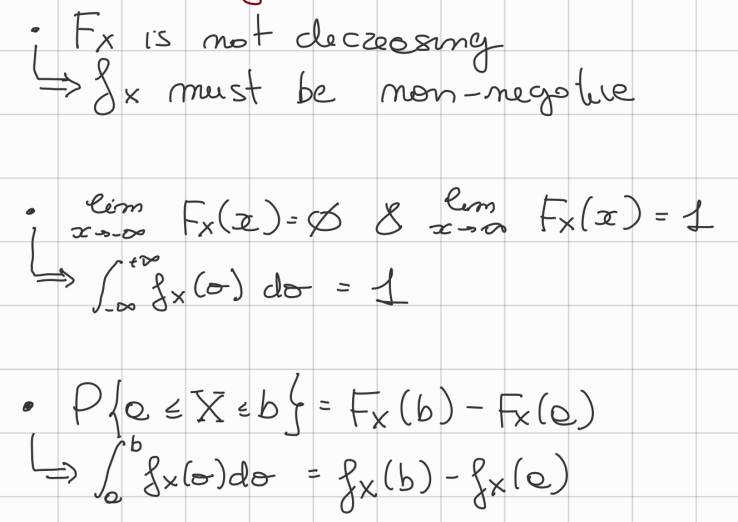 • F_X is not decreasing
↳ f_X must be non-negative
• lim x→-∞ F_X(x) = ∅ & lim x→∞ F_X(x) = 1
↳ ∫_{-∞}^{+∞} f_X(σ) dσ = 1
• P{a ≤ X ≤ b} = F_X(b) - F_X(a)
↳ ∫_a^b f_X(σ)dσ = f_X(b) - f_X(a)